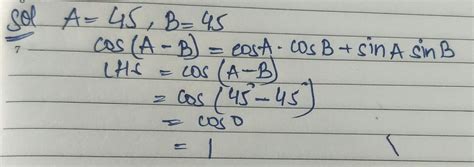 Sol A = 45, B = 45
cos(A - B) = cosA · cosB + sinA sinB
LHS = cos(A - B)
= cos(45° - 45°)
= cos 0
= 1